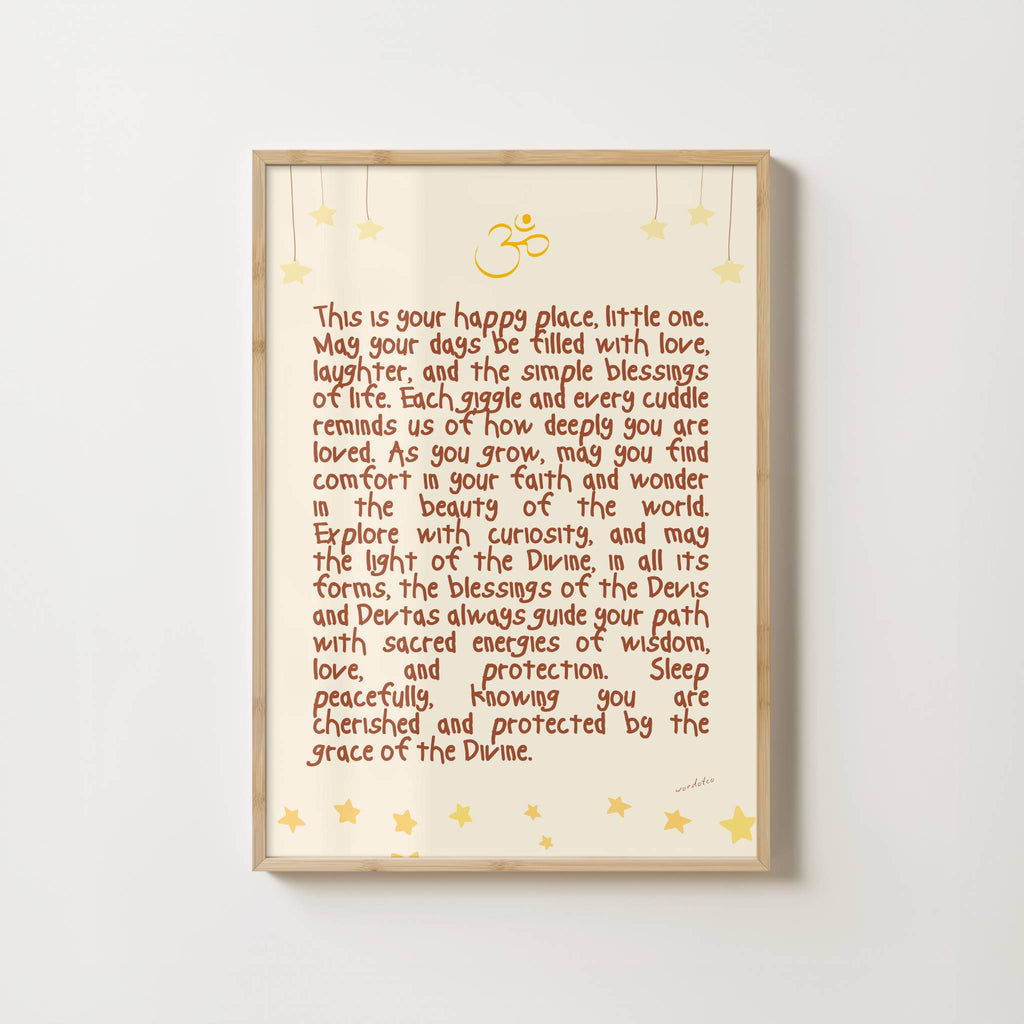 ॐ
This is your happy place, little one.
May your days be filled with love,
laughter, and the simple blessings
of life. Each giggle and every cuddle
reminds us of how deeply you are
loved. As you grow, may you find
comfort in your faith and wonder
in the beauty of the world.
Explore with curiosity, and may
the light of the Divine, in all its
forms, the blessings of the Devis
and Devtas always guide your path
with sacred energies of wisdom,
love, and protection. Sleep
peacefully, knowing you are
cherished and protected by the
grace of the Divine.
wordofco